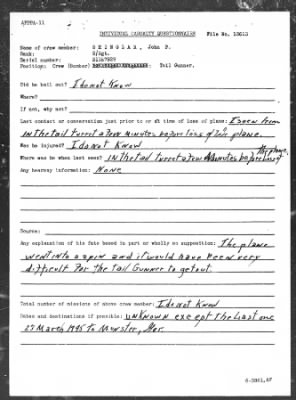 AFPPA-11
INDIVIDUAL CASUALTY QUESTIONNAIRE File No. 13613
Name of crew member: John P.
Rank: S/Sgt.
Serial number:
Position: Crew (Number) Tail Gunner.
Did he bail out? I do not Know
Where?
If not, why not?
Last contact or conversation just prior to or at time of loss of plane: I seen him
in the tail turret a few minutes before loss of our plane.
Was he injured? I do not Know
Where was he when last seen? in the tail turret a few minutes before loss of the plane.
Any hearsay information: None
Source:
Any explanation of his fate based in part or wholly on supposition: The plane
went into a spin and it would have been very
difficult for the tail Gunner to get out.
Total number of missions of above crew member: I do not Know
Dates and destinations if possible: UNKNOWN except the last one
23 March 1945 to Munster, Ger.
6-3861,AF